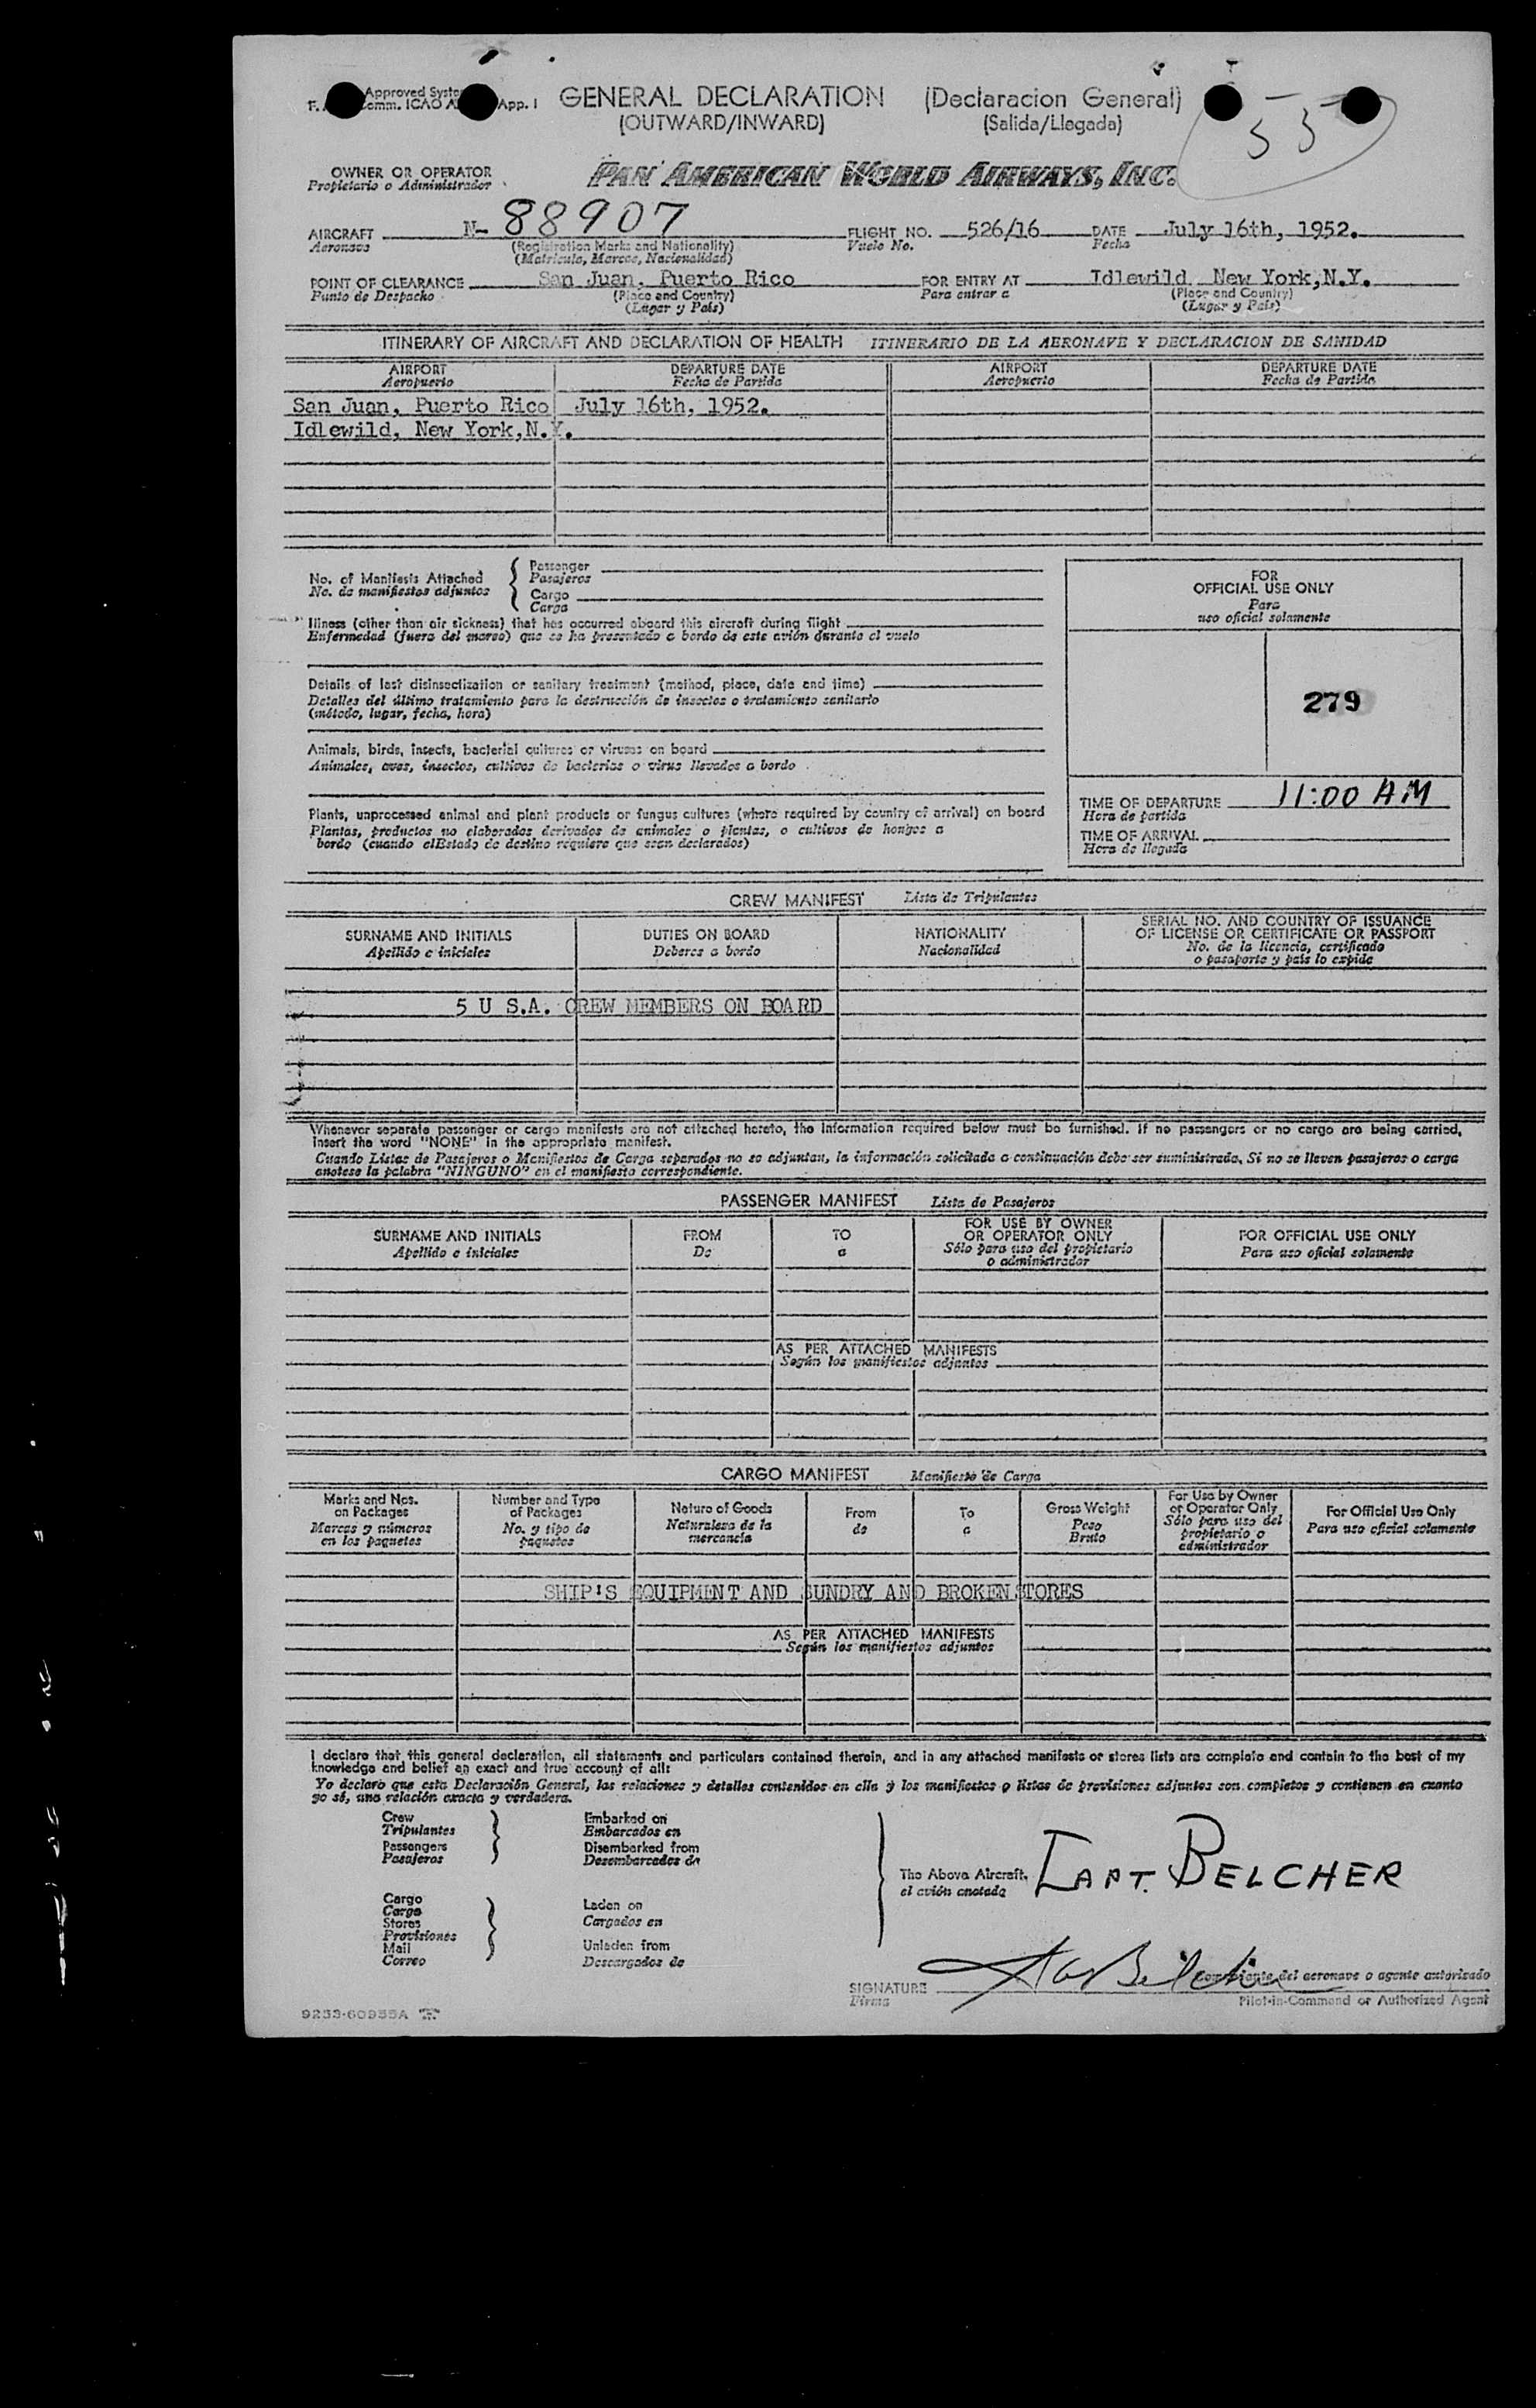 Approved System
Comm. ICAO App. I
GENERAL DECLARATION (Declaracion General)
(OUTWARD/INWARD) (Salida/Llegada)
55
OWNER OR OPERATOR
Propietario o Administrador
PAN AMERICAN WORLD AIRWAYS, INC.
AIRCRAFT N- 88907 FLIGHT NO. 526/16 DATE July 16th, 1952.
Aeronave (Registration Marks and Nationality) Vuelo No. Fecha
(Matricula, Marcas, Nacionalidad)
POINT OF CLEARANCE San Juan, Puerto Rico FOR ENTRY AT Idlewild New York,N.Y.
Punto de Despacho (Place and Country) Para entrar a (Place and Country)
(Lugar y País) (Lugar y País)
ITINERARY OF AIRCRAFT AND DECLARATION OF HEALTH ITINERARIO DE LA AERONAVE Y DECLARACION DE SANIDAD
AIRPORT DEPARTURE DATE AIRPORT DEPARTURE DATE
Aeropuerto Fecha de Partida Aeropuerto Fecha de Partida
San Juan, Puerto Rico July 16th, 1952.
Idlewild, New York,N.Y.
No. of Manifests Attached { Passenger
No. de manifiestos adjuntos Pasajeros
Cargo
Carga
Illness (other than air sickness) that has occurred aboard this aircraft during flight
Enfermedad (fuera del mareo) que se ha presentado a bordo de este avión durante el vuelo
Details of last disinsectization or sanitary treatment (method, place, date and time)
Detalles del último tratamiento para la destrucción de insectos o tratamiento sanitario
(método, lugar, fecha, hora)
Animals, birds, insects, bacterial cultures or viruses on board
Animales, aves, insectos, cultivos de bacterias o virus llevados a bordo
Plants, unprocessed animal and plant products or fungus cultures (where required by country of arrival) on board
Plantas, productos no elaborados derivados de animales o plantas, o cultivos de hongos a
bordo (cuando elEstado de destino requiere que sean declarados)
FOR
OFFICIAL USE ONLY
Para
uso oficial solamente
279
TIME OF DEPARTURE 11:00 AM
Hora de partida
TIME OF ARRIVAL
Hora de llegada
CREW MANIFEST Lista de Tripulantes
SURNAME AND INITIALS DUTIES ON BOARD NATIONALITY SERIAL NO. AND COUNTRY OF ISSUANCE
OF LICENSE OR CERTIFICATE OR PASSPORT
Apellido e iniciales Deberes a bordo Nacionalidad No. de la licencia, certificado
o pasaporte y país lo expide
5 U S.A. CREW MEMBERS ON BOARD
Whenever separate passenger or cargo manifests are not attached hereto, the information required below must be furnished. If no passengers or no cargo are being carried,
insert the word "NONE" in the appropriate manifest.
Cuando Listas de Pasajeros o Manifiestos de Carga separados no se adjuntan, la información solicitada a continuación debe ser suministrada. Si no se lleven pasajeros o carga
anotese la palabra "NINGUNO" en el manifiesto correspondiente.
PASSENGER MANIFEST Lista de Pasajeros
SURNAME AND INITIALS FROM TO FOR USE BY OWNER FOR OFFICIAL USE ONLY
OR OPERATOR ONLY
Apellido e iniciales De a Sólo para uso del propietario Para uso oficial solamente
o administrador
AS PER ATTACHED MANIFESTS
Según los manifiestos adjuntos
CARGO MANIFEST Manifiesto de Carga
Marks and Nos. Number and Type Nature of Goods From To Gross Weight For Use by Owner For Official Use Only
on Packages of Packages or Operator Only
Marcas y números No. y tipo de Naturaleza de la de a Peso Sólo para uso del Para uso oficial solamente
en los paquetes paquetes mercancía Bruto propietario o
administrador
SHIP'S EQUIPMENT AND SUNDRY AND BROKEN STORES
AS PER ATTACHED MANIFESTS
Según los manifiestos adjuntos
I declare that this general declaration, all statements and particulars contained therein, and in any attached manifests or stores lists are complete and contain to the best of my
knowledge and belief an exact and true account of all:
Yo declaro que esta Declaración General, las relaciones y detalles contenidos en ella y los manifiestos o listas de provisiones adjuntos son completos y contienen en cuanto
yo sé, una relación exacta y verdadera.
Crew Embarked on
Tripulantes Embarcados en
Passengers Disembarked from
Pasajeros Desembarcados de
Cargo Laden on
Carga Cargados en
Stores
Provisiones
Mail Unladen from
Correo Descargados de
The Above Aircraft.
el avión anotado
CAPT. BELCHER
SIGNATURE del aeronave o agente autorizado
Firma Pilot-in-Command or Authorized Agent
9253-60955A